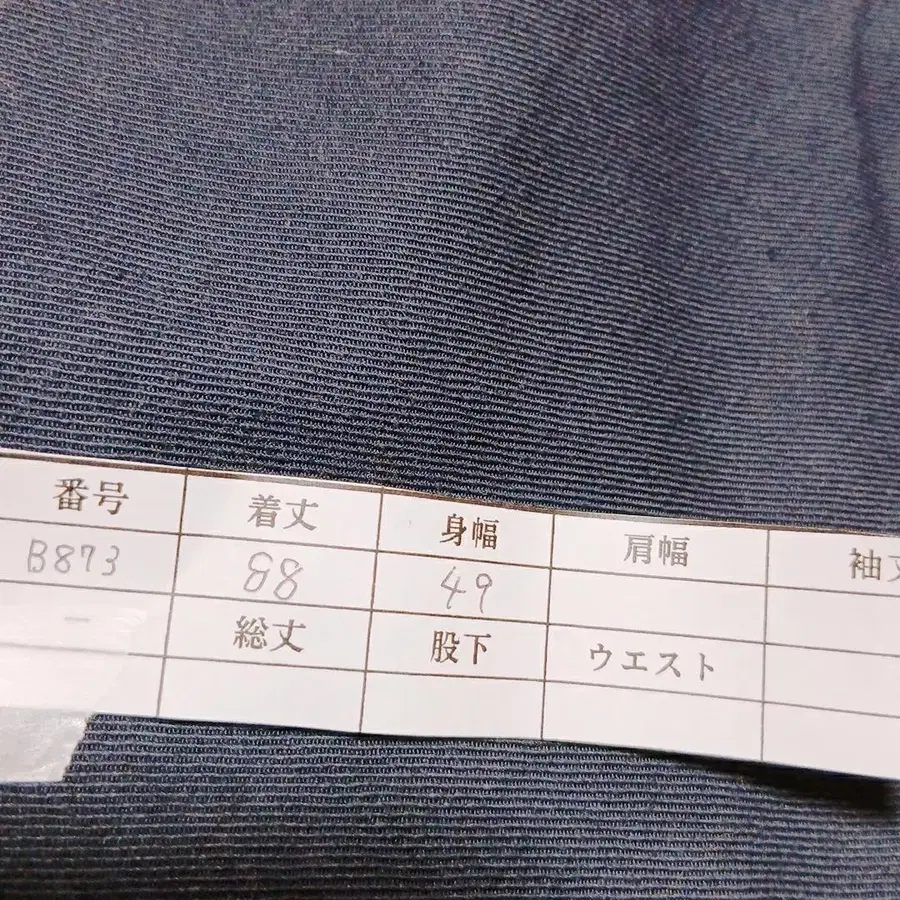 番号 着丈 身幅 肩幅 袖丈
B873 88 49
- 総丈 股下 ウエスト